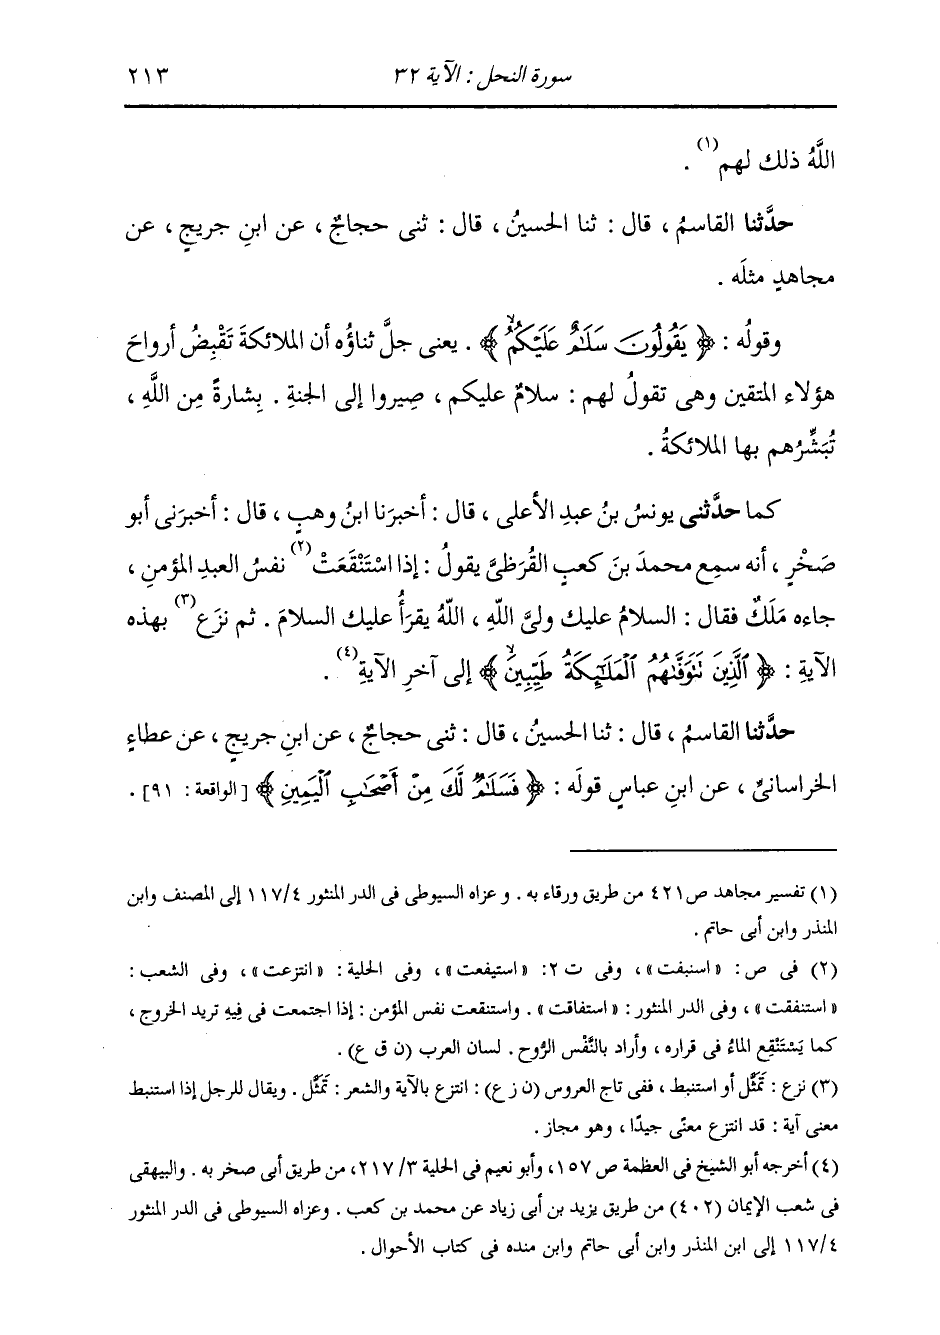 سورة النحل : الآية ٣٢ ٢١٣
اللَّهُ ذلك لهم(١) .
حدَّثنا القاسمُ ، قال : ثنا الحسينُ ، قال : ثنى حجاجٌ ، عن ابنِ جريجٍ ، عن
مجاهدٍ مثلَه .
وقولُه : ﴿ يَقُولُونَ سَلَٰمٌ عَلَيْكُمُۙ ﴾ . يعنى جلَّ ثناؤُه أن الملائكةَ تَقْبِضُ أرواحَ
هؤلاء المتقين وهى تقولُ لهم : سلامٌ عليكم ، صِيروا إلى الجنةِ . بِشارةً مِن اللَّهِ ،
تُبَشِّرُهم بها الملائكةُ .
كما حدَّثنى يونسُ بنُ عبدِ الأعلى ، قال : أخبرَنا ابنُ وهبٍ ، قال : أخبرَنى أبو
صَخْرٍ ، أنه سمِع محمدَ بنَ كعبٍ القُرَظىَّ يقولُ : إذا اسْتَنْقَعَتْ(٢) نفسُ العبدِ المؤمنِ ،
جاءه مَلَكٌ فقال : السلامُ عليك ولىَّ اللَّهِ ، اللَّهُ يقرَأُ عليك السلامَ . ثم نزَع(٣) بهذه
الآيةِ : ﴿ ٱلَّذِينَ تَتَوَفَّىٰهُمُ ٱلْمَلَٰٓئِكَةُ طَيِّبِينَۙ ﴾ إلى آخرِ الآيةِ(٤) .
حدَّثنا القاسمُ ، قال : ثنا الحسينُ ، قال : ثنى حجاجٌ ، عن ابنِ جريجٍ ، عن عطاءٍ
الخراسانىِّ ، عن ابنِ عباسٍ قولَه : ﴿ فَسَلَٰمٌ لَّكَ مِنْ أَصْحَٰبِ ٱلْيَمِينِ ﴾ [الواقعة : ٩١] .
(١) تفسير مجاهد ص٤٢١ من طريق ورقاء به . وعزاه السيوطى فى الدر المنثور ١١٧/٤ إلى المصنف وابن
المنذر وابن أبى حاتم .
(٢) فى ص : « اسنبفت » ، وفى ت ٢: « استيفعت » ، وفى الحلية : « انتزعت » ، وفى الشعب :
« استنفقت » ، وفى الدر المنثور : « استفاقت » . واستنقعت نفس المؤمن : إذا اجتمعت فى فِيهِ تريد الخروج ،
كما يَسْتَنْقِع الماءُ فى قراره ، وأراد بالنَّفْس الرُّوح . لسان العرب (ن ق ع) .
(٣) نزع : تَمثَّل أو استنبط ، ففى تاج العروس (ن ز ع) : انتزع بالآية والشعر : تَمثَّل . ويقال للرجل إذا استنبط
معنى آية : قد انتزع معنًى جيدًا ، وهو مجاز .
(٤) أخرجه أبو الشيخ فى العظمة ص ١٥٧، وأبو نعيم فى الحلية ٢١٧/٣، من طريق أبى صخر به . والبيهقى
فى شعب الإيمان (٤٠٢) من طريق يزيد بن أبى زياد عن محمد بن كعب . وعزاه السيوطى فى الدر المنثور
١١٧/٤ إلى ابن المنذر وابن أبى حاتم وابن منده فى كتاب الأحوال .